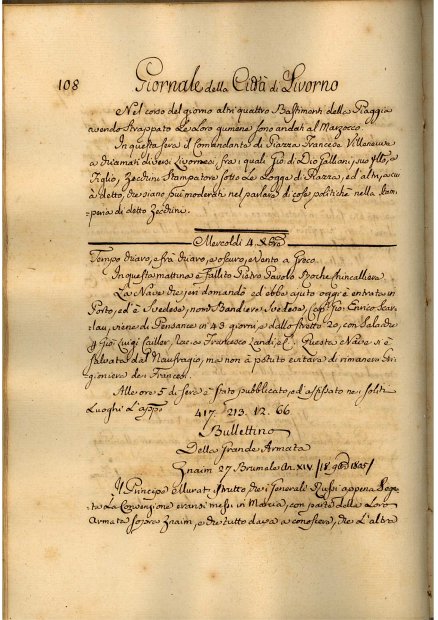 108 Giornale della Città di Livorno
Nel corso del giorno altri quattro Bastimenti della Spiaggia
avendo strappato le loro gumene sono andati al Marzocco.
In questa sera il Comandante di Piazza Francese Villeneuve
à chiamati diversi Livornesi, fra i quali Gio: di Dio
Figlio, Zecchini Stampatore sotto le Logge di Piazza, ed altri, a cui
à detto, che siano più moderati nel parlare di cose politiche nella Stam-
peria di detto Zecchini.
Mercoldì 4. Xbre
Tempo chiaro, e frà chiaro, e oscuro, e vento a Greco.
In questa mattina è fallito Pietro Pavolo Roche chincalliere.
La Nave che jeri domandò ed ebbe ajuto oggi è entrata in
Porto, ed è Svedese, con Bandiera Svedese, Cap. Gio: Enrico
viene di Penzance in 43 giorni, e dallo stretto 20, con Salacche
p. Gio: Luigi Cailler, Francesco Zandi, e C. Questa Nave si è
salvata dal Naufragio, ma non à potuto evitare di rimanere Pri-
gioniera dei Francesi.
Alle ore 5 di sera è stato pubblicato, ed affissato nei soliti
Luoghi l'app.
417. 213. 12. 66
Bullettino
Della Grande Armata
Znaim 27 Brumale An. XIV /18 9bre 1805/
Il Principe Murat, istrutto che i Generali Russi appena segna-
ta la Convenzione eransi messi in Marcia, con parte della Loro
Armata sopra Znaim, e che tutto dava a conoscere, che l'altra